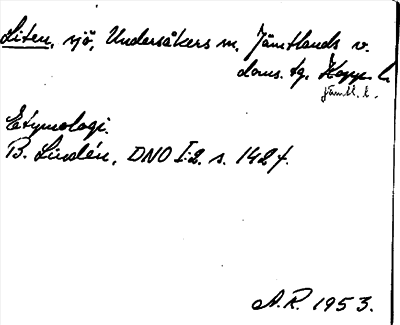 Liten, sjö, Undersåkers sn, Jämtlands v.
doms. tg,
jämtl. l.
Etymologi.
B. Lindén, DNO I:2. s. 142 f.
A.R. 1953.